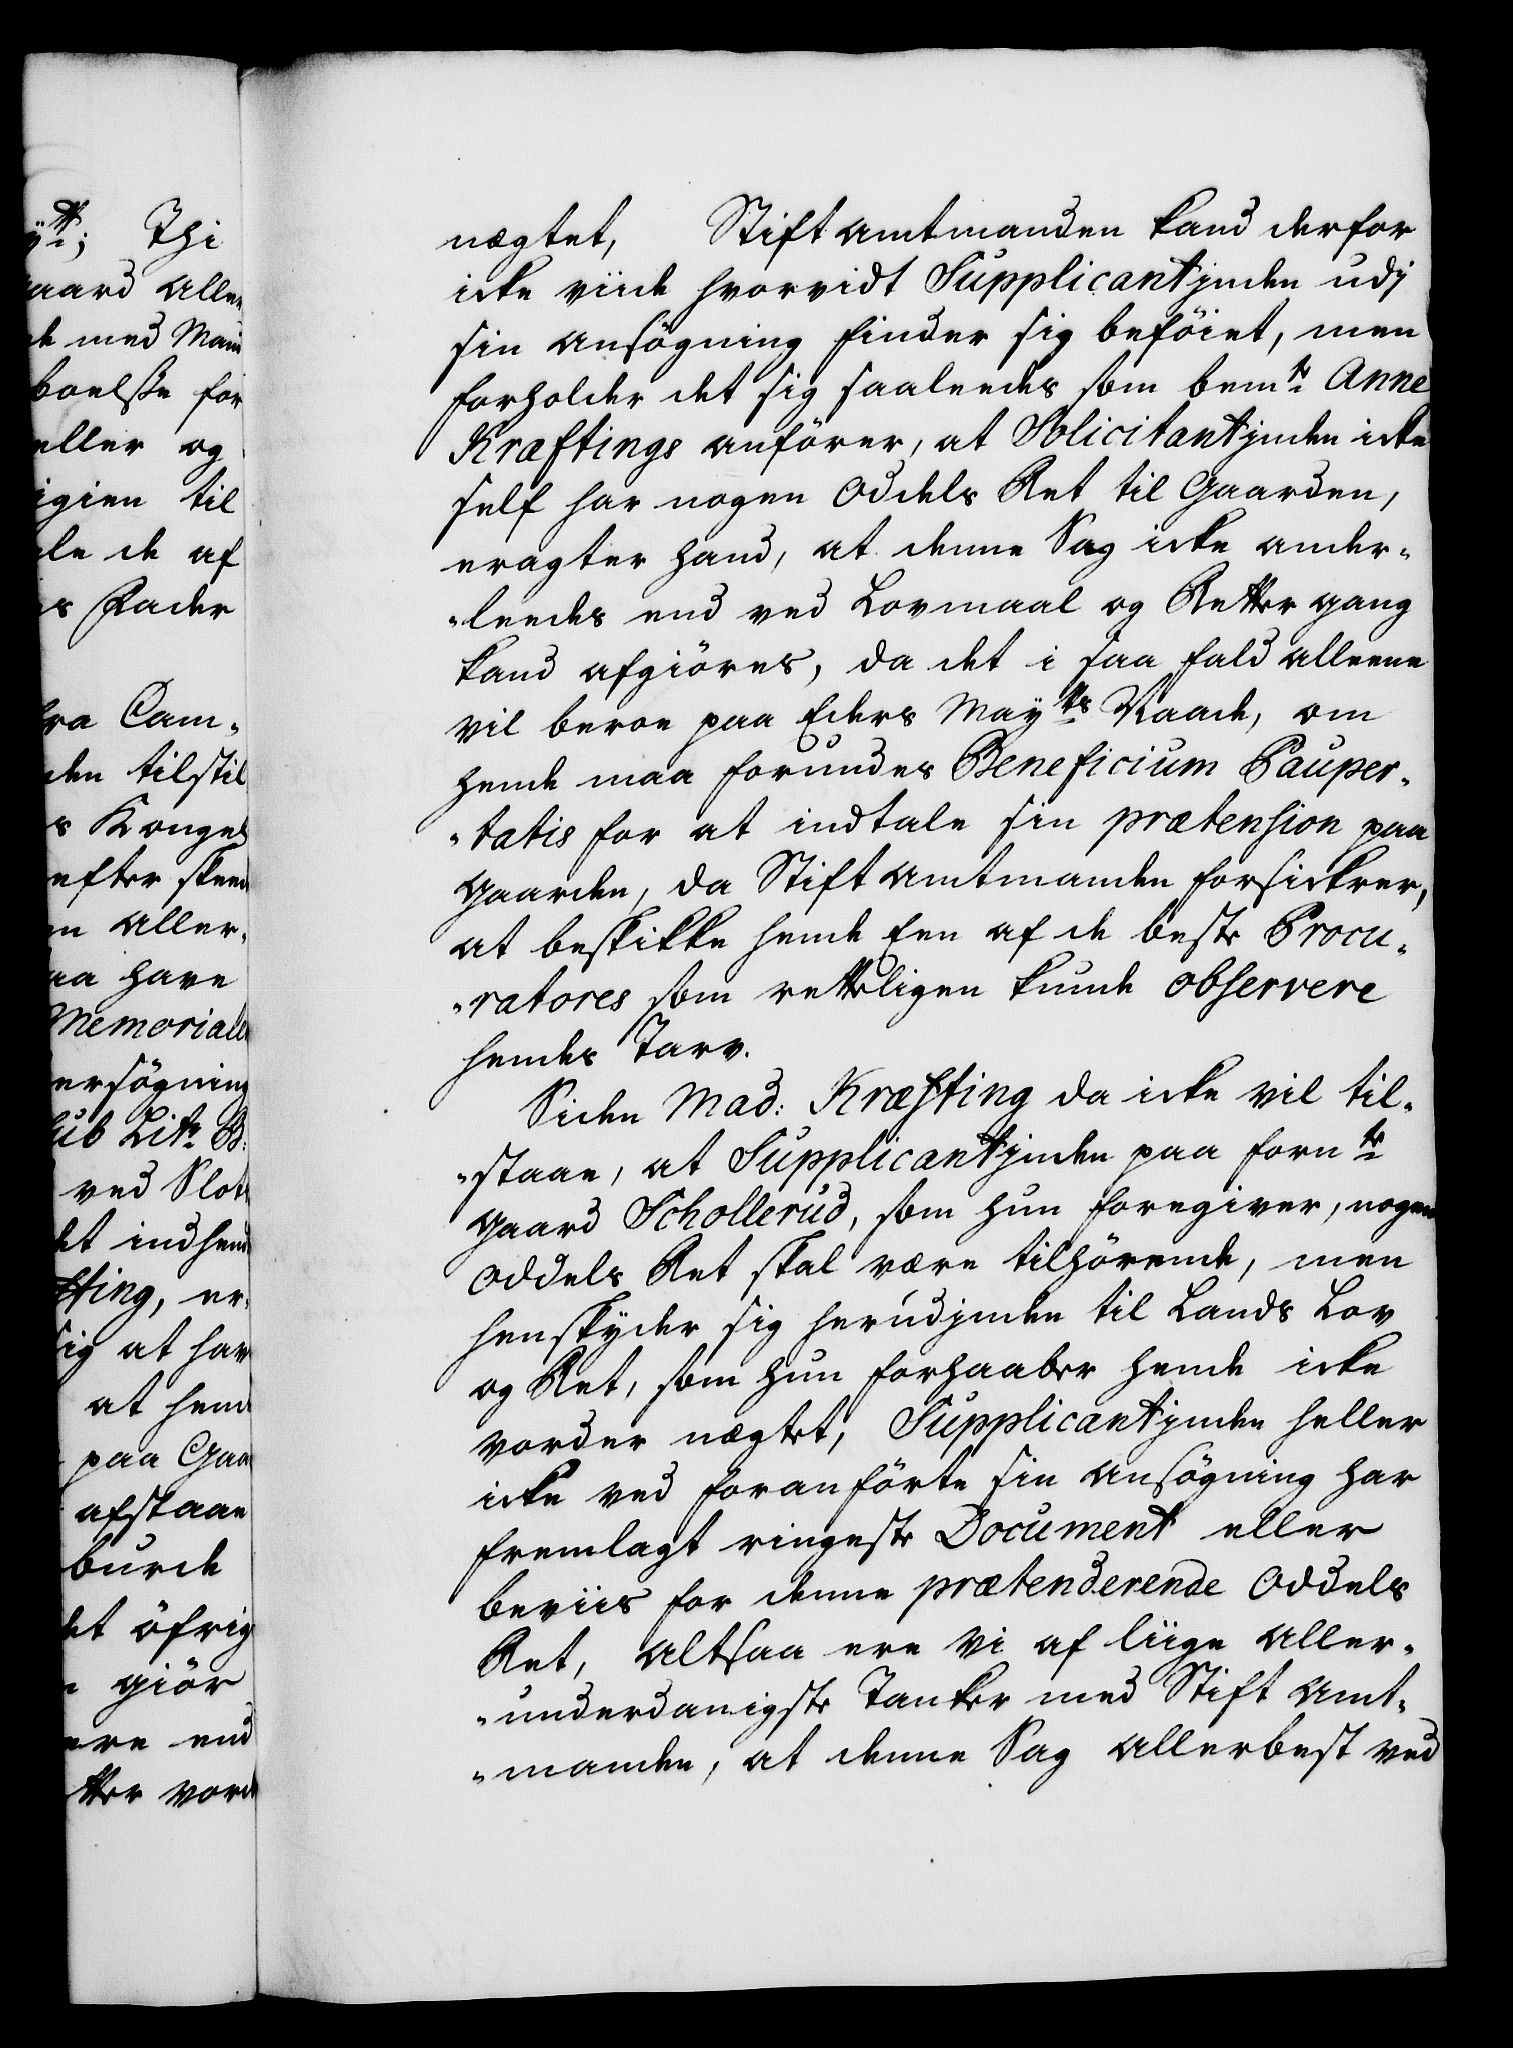 ÿtt; Thi
gaard aller
de med Man
boelsse for
eller og
igien til
ale de af
es Fader
fra Cam-
den tilstil
s Kongel
efter skeed
en aller-
aa have
Memoriale
ersögning
sub Litr B:
ved Slot
det indhen
fting, er-
sig at hav
at hend
paa Gaa
afstaae
burde
det öfrig
giör
ere end
tter vord
nægtet, Stiftamtmanden kand derfor
icke viide hvorvidt Supplicantjnden udj
sin ansögning finder sig beföiet, men
forholder det sig saaleedes som bemte Anne
Kræftings anförer, at Solicitantjnden icke
self har nogen Oddels Ret til Gaarden,
eragter hand, at denne Sag icke ander-
-leedes end ved Lovmaal og Rettergang
kand afgiöres, da det i saa fald alleene
vil beroe paa Eders Mayts Naade, om
hende maa forundes Beneficium Pauper-
-tatis for at indtale sin prætension paa
gaarden, da Stiftamtmanden forsickrer,
at beskikke hende Een af de beste Procu-
-ratores som retteligen kunde observere
hendes Tarv.
Siden Mad: Kræfting da icke vil til-
-staae, at Supplicantjnden paa fornte
gaard Schollerud, som hun foregiver, nogen
Oddels Ret skal være tilhörende, men
henskyder sig herudjnden til Lands Lov
og Ret, som hun forhaaber hende icke
vorder nægtet, Supplicantjnden heller
icke ved foranförte sin ansögning har
fremlagt ringeste Document eller
beviis for denne prætenderende Oddels
Ret, altsaa ere vi af liige aller-
-underdanigste Tanker med Stift amt-
-manden, at denne Sag allerbest ved